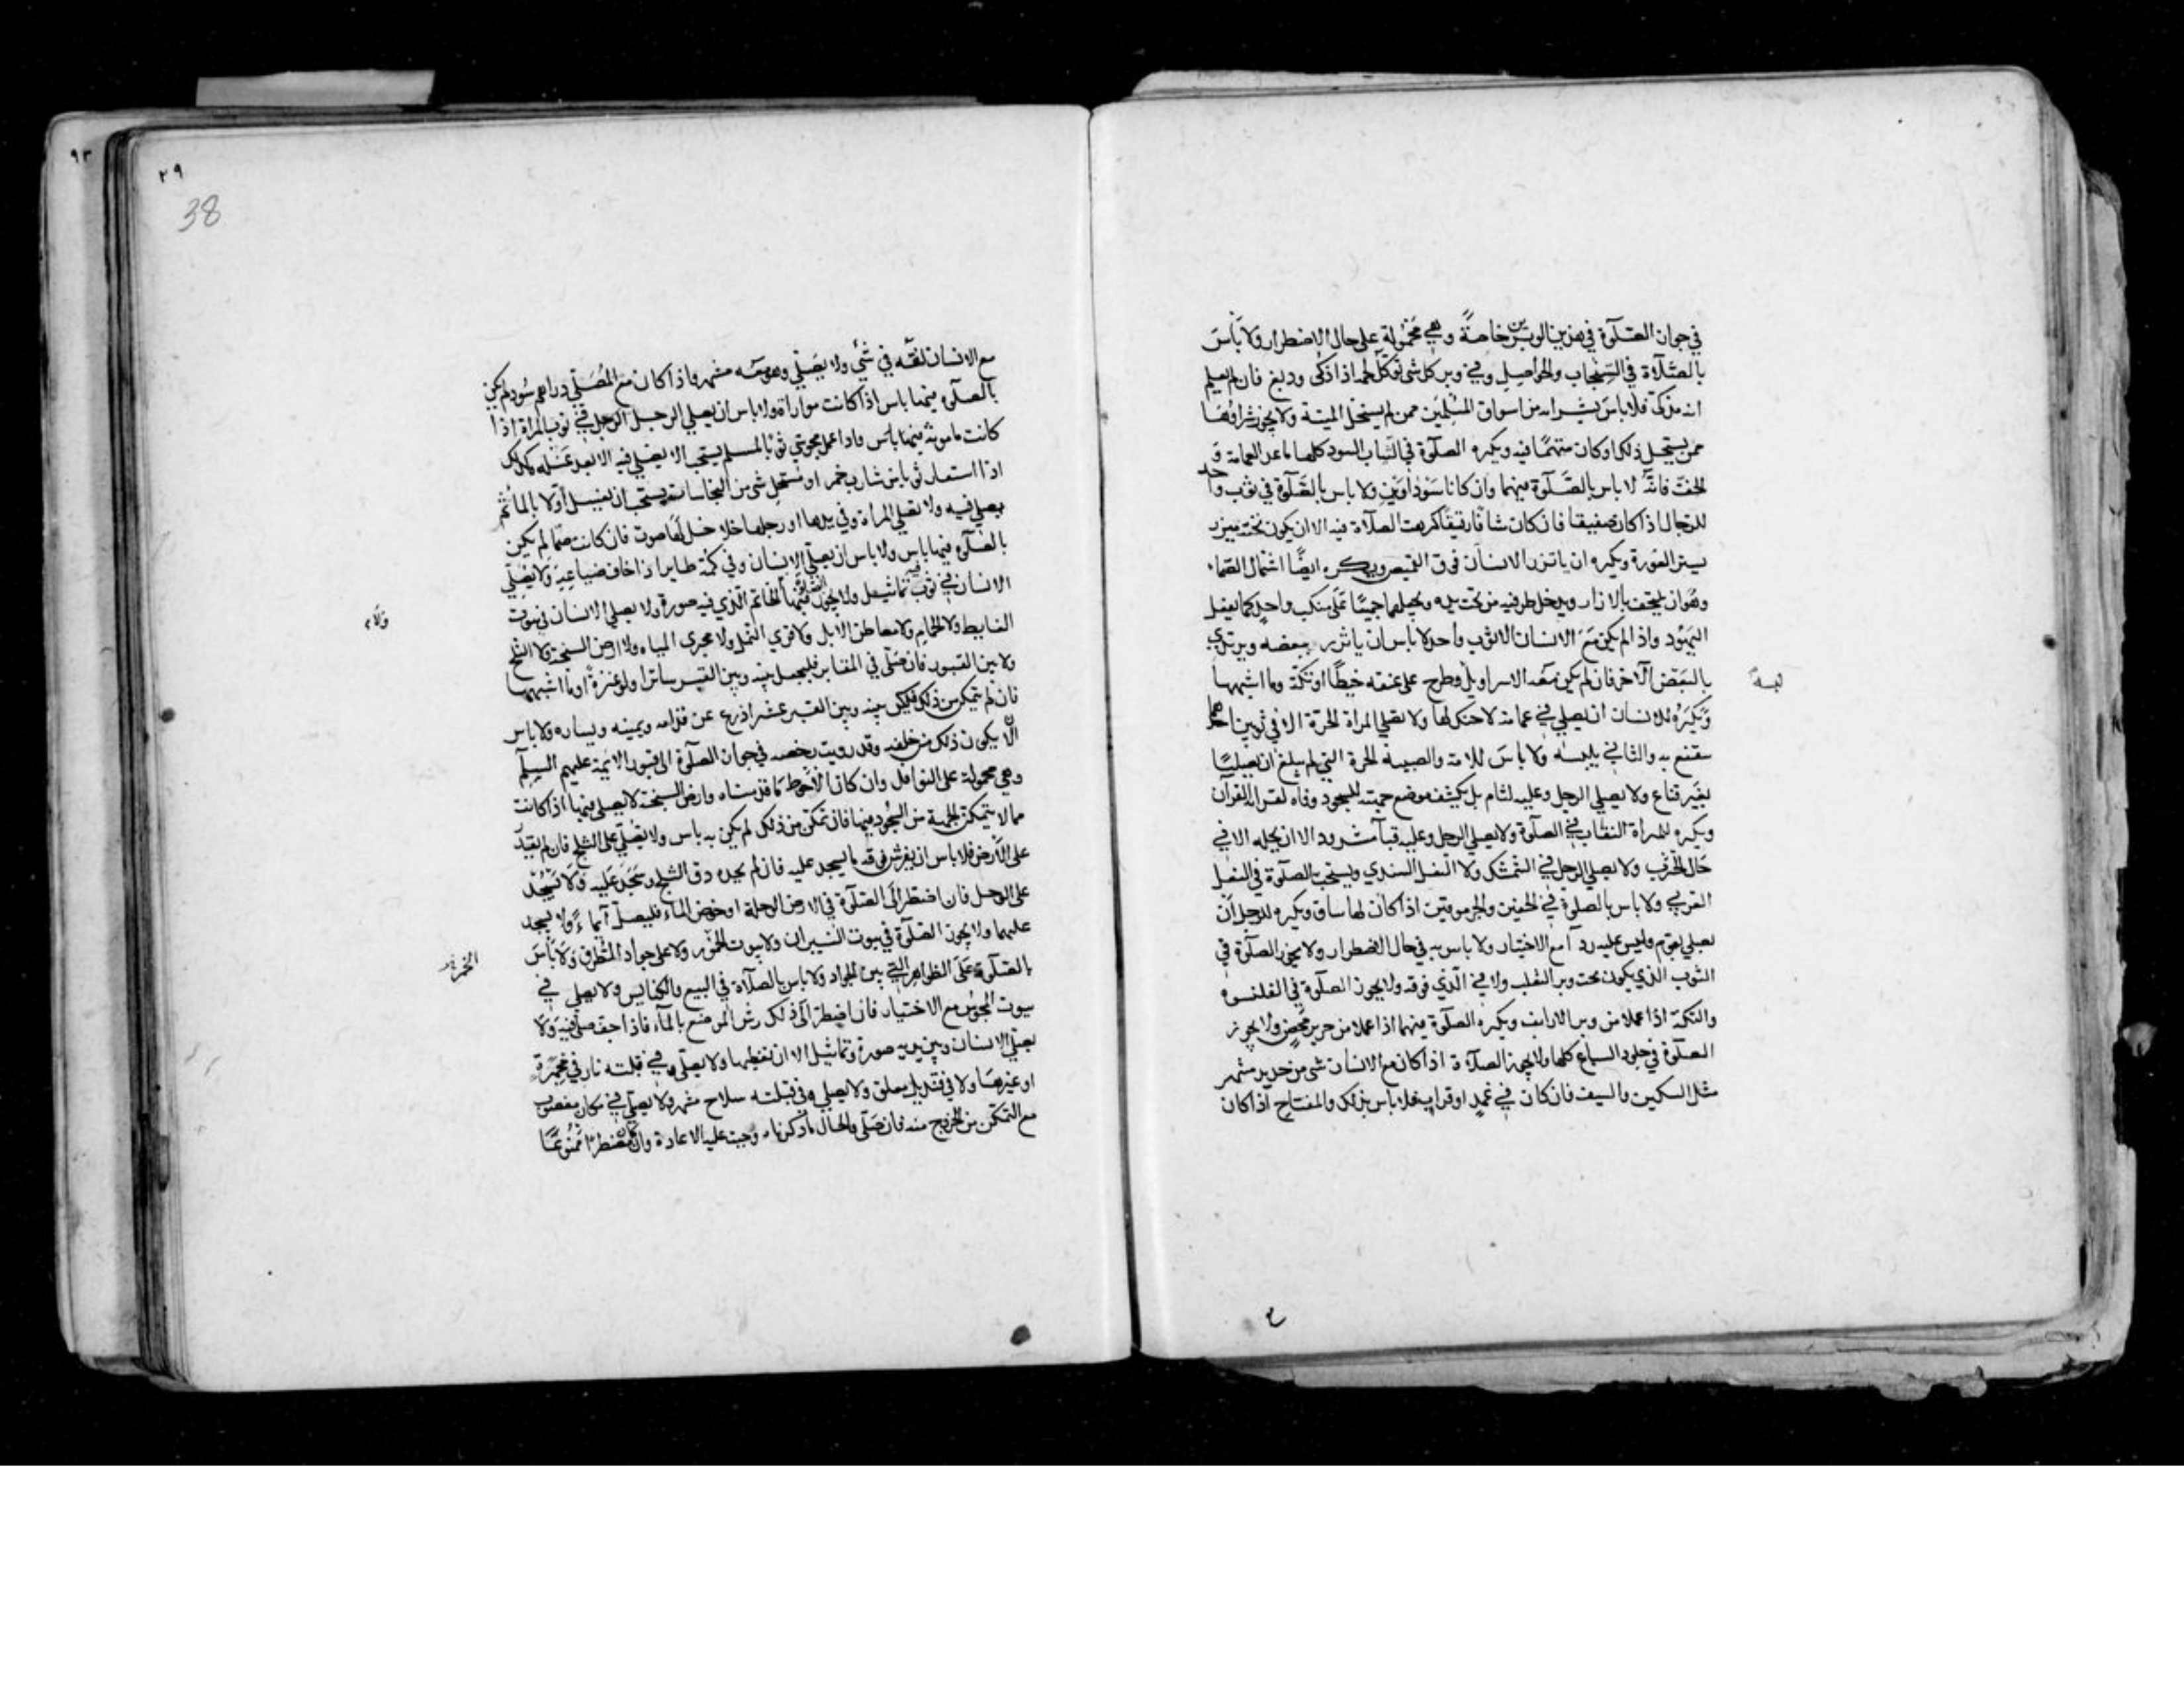 في جواز الصلوة في هذين الوبرين خاصة وهي محمولة على حال الاضطرار ولا بأس
بالصلاة في السنجاب والحواصل وفي وبر كل شي توكل لحمه اذا ذكى ودبغ فان لم يعلم
انه مذكى فلا باس بشرائه من اسواق المسلمين ممن لم يستحل الميتة ولا يجوز شراؤها
ممن يستحل ذلك او كان متهما فيه ويكره الصلوة في الثياب السود كلها ما عدا العمامة و
الخف فانه لا باس بالصلوة فيهما وان كانا سوداوين ولا باس بالصلوة في ثوب واحد
للرجال اذا كان صفيقا فان كان شافا رقيقا كرهت الصلاة فيه الا ان يكون تحته ميزر
يستر العورة ويكره ان ياتزر الانسان فوق القميص ويكره ايضا اشتمال الصماء
وهو ان يلتحف بالازار ويدخل طرفيه من تحت يده ويجعلهما جميعا على منكب واحد كما يفعل
اليهود واذا لم يكن مع الانسان الا ثوب واحد لا باس ان ياتزر ببعضه ويرتدي
بالبعض الآخر فان لم يكن معه الا سراويل وطرح على عنقه خيطا او تكة وما اشبهها
ويكره للانسان ان يصلي في عمامة لا حنك لها ولا تصلي المراة الحرة الا في ثوبين احدهما
تتقنع به والثاني يلبسه ولا باس للامة والصبية الحرة التي لم تبلغ ان تصليا
بغير قناع ولا يصلي الرجل وعليه لثام بل يكشف موضع جبهته للسجود وفاه لقراة القرآن
ويكره للمراة النقاب في الصلوة ولا يصلي الرجل وعليه قبآ مشدود الا ان يحله الا في
حال الحرب ولا يصلي الرجل في الشمشك ولا النعل السندي ويستحب الصلوة في النعل
العربي ولا باس بالصلوة في الخفين والجرموقين اذا كان لها ساق ويكره للرجل ان
يصلي بقوم وليس عليه ردآ مع الاختيار ولا باس به في حال الضطرار ولا يجوز الصلوة في
الثوب الذي يكون تحت وبر الثعلب ولا في الذي فوقه ولا يجوز الصلوة في القلنسوه
والتكة اذا عملا من وبر الارانب ويكره الصلوة فيهما اذا عملا من حرير محض ولا يجوز
الصلوة في جلود السباع كلها ولا يجوز الصلاة اذا كان مع الانسان شي من حديد مشهر
مثل السكين والسيف فان كان في غمد او قراب فلا باس بذلك والمفتاح اذا كان
لبسة
٢٩
38
٩٣
مع الانسان لفه في شي ولا يصلي وهو معه مشهر واذا كان مع المصلي دراهم سود لم يكن
بالصلوة فيها باس اذا كانت مواراة ولا باس ان يصلي الرجل في ثوب المراة اذا
كانت مامونة فيها باس واذا عمل مجوسي ثوبا لمسلم يستحب الا يصلي فيه الا بعد غسله وكذلك
اذا استعار ثوبا من شارب خمر او مستحل شي من النجاسات يستحب ان يغسل اولا بالماء ثم
يصلي فيه ولا تصلي المراة وفي يدها او رجلها خلاخل لها صوت فان كانت صما لم يكن
بالصلوة فيها باس ولا باس ان يصلي الانسان وفي كمه طاير اذا خاف ضياعه ولا يصلي
الانسان في ثوب فيه تماثيل ولا يجوز الخاتم الذي فيه صورة ولا يصلي الانسان في بيوت
الغايط ولا الحمام ولا معاطن الابل ولا قرى النمل ولا مجرى المياه ولا ارض السبخة ولا الثلج
ولا بين القبور فان صلى في المقابر فليجعل بينه وبين القبر ساترا ولو عنزة او ما اشبهها
فان لم يتمكن من ذلك فليكن بينه وبين القبر عشر اذرع عن قدامه ويمينه ويساره ولا باس
الا يكون ذلك من خلفه وقد رويت رخصه في جواز الصلوة الى قبور الايمة عليهم السلم
وهي محمولة على النوافل وان كان الاحوط ما قدمناه وارض السبخة لا يصلى فيها اذا كانت
مما لا يتمكن الجبهة من السجود فيها فان تمكن من ذلك لم يكن به باس ولا يصلي على الثلج فان لم يقدر
على الارض فلا باس ان يفرش فوقه ما يسجد عليه فان لم يجده دق الثلج وسجد عليه ولا يسجد
على الوحل فان اضطر الى الصلوة في الارض الوحلة او خوض الماء فليصل ايماءً ولا يسجد
عليهما ولا يجوز الصلوة في بيوت النيران ولا بيوت الخمور ولا على جواد الطرق ولا بأس
بالصلوة على الظواهر التي بين الجواد ولا باس بالصلاة في البيع والكنايس ولا يصلي في
بيوت المجوس مع الاختيار فان اضطر الى ذلك رش الموضع بالماء فاذا جف صلى فيه ولا
يصلي الانسان وبين يديه صورة وتماثيل الا ان يغطيها ولا يصلي وفي قبلته نار في مجمرة
او غيرها ولا في قنديل معلق ولا يصلي وفي قبلته سلاح مشهر ولا يصلي في مكان مغصوب
مع التمكن من الخروج منه فان صلى والحال ما ذكرناه وجبت عليه الاعادة وان كان مضطرا ممنوعا